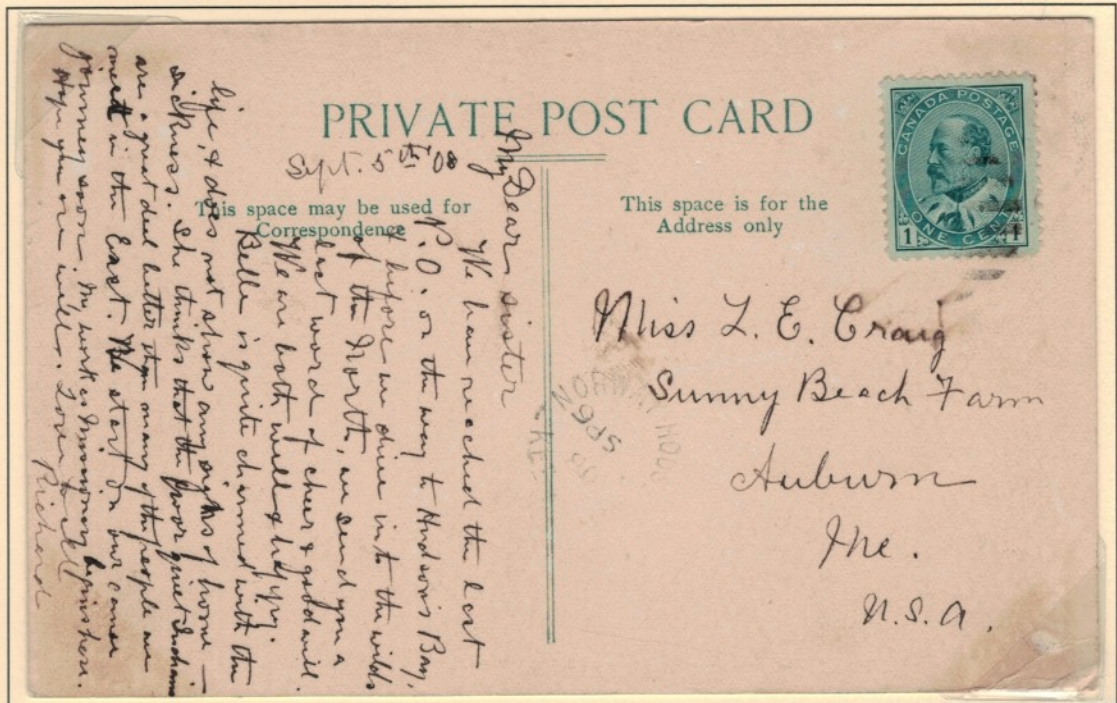 PRIVATE POST CARD
CANADA POSTAGE
1 ONE CENT 1
Sept. 5th 08
This space may be used for
Correspondence
This space is for the
Address only
My Dear sister
We have reached the last
P.O. on the way to Hudson's Bay,
& before we dive into the wilds
of the North, we send you a
last word of cheer & good will.
We are both well & happy.
Belle is quite charmed with the
life, & does not show any sighs of home-
sickness. She thinks that the poor quiet Indians
are a great deal better than many of the people we
meet in the East. We start on our canoe
journey soon. My work as Missionary begins here.
Hope you are well. Love to all
Richard
Miss L. E. Craig
Sunny Beach Farm
Auburn
Me.
U.S.A.
SP 6
08
ONT